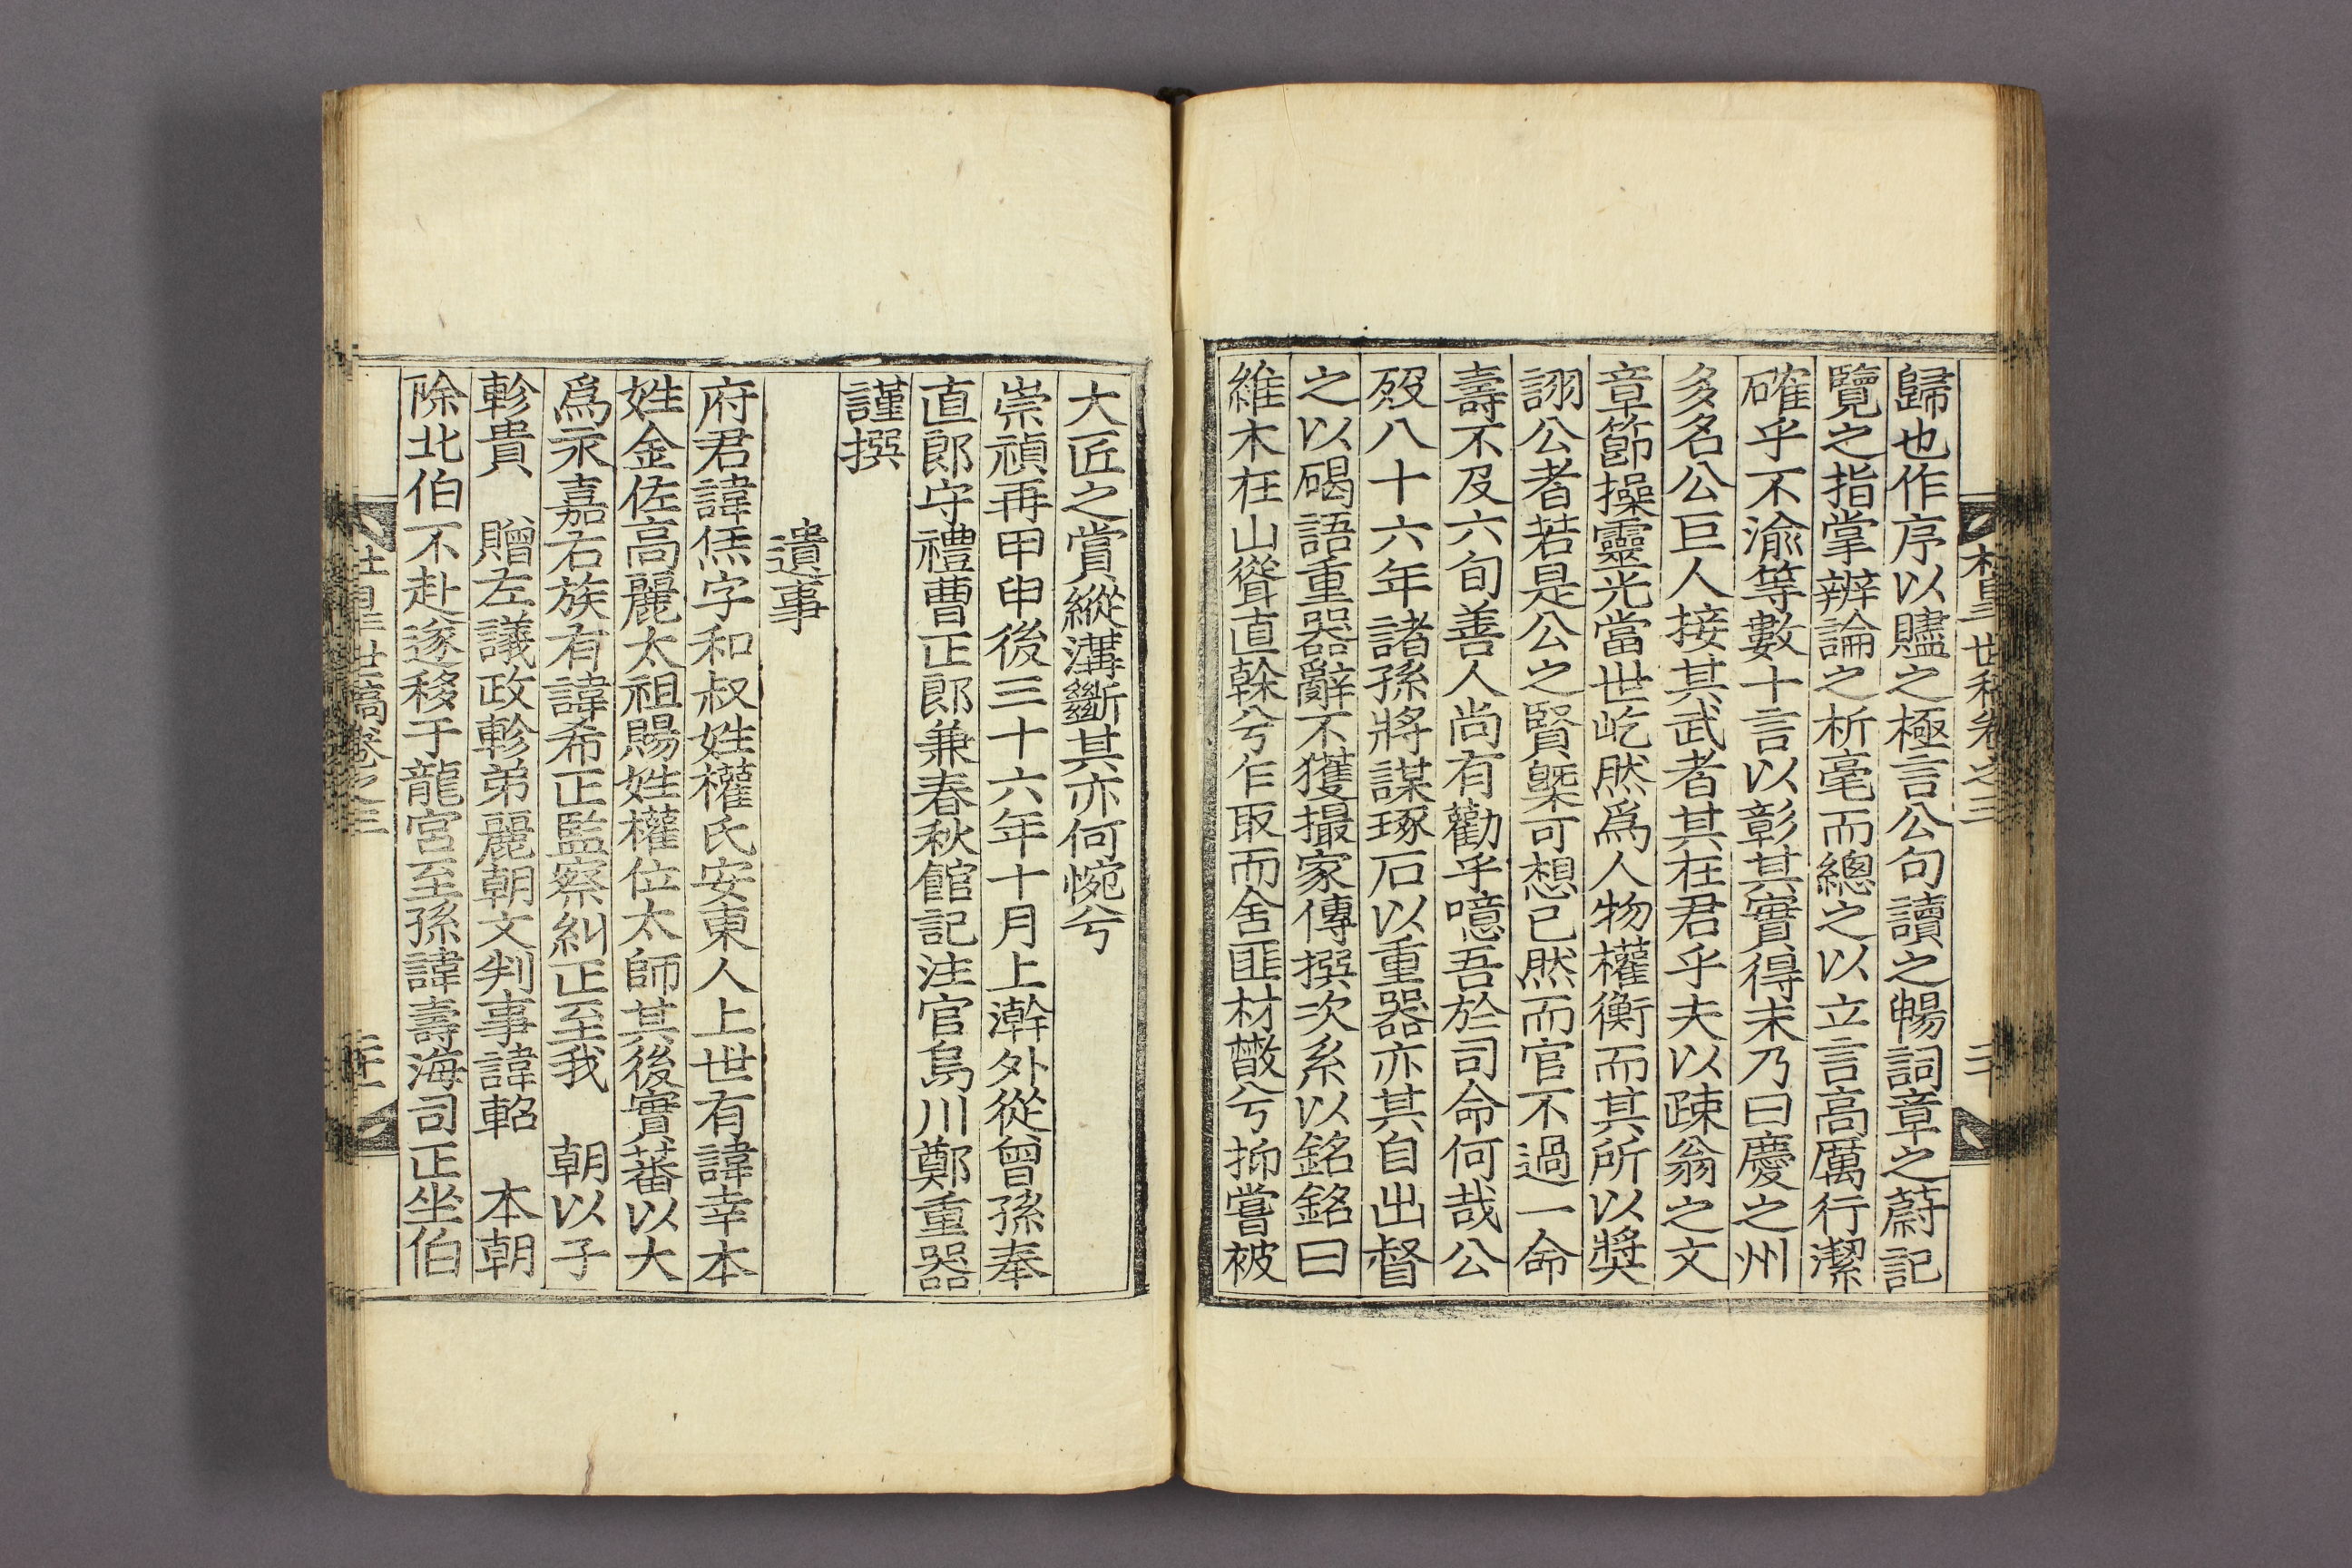 歸也作序以贐之極言公句讀之暢詞章之蔚記
覽之指掌辨論之析毫而總之以立言高厲行潔
確乎不渝等數十言以彰其實得末乃曰慶之州
多名公巨人接其武者其在君乎夫以疎翁之文
章節操靈光當世屹然爲人物權衡而其所以奬
詡公者若是公之賢槩可想已然而官不過一命
壽不及六旬善人尚有勸乎噫吾於司命何哉公
歿八十六年諸孫將謀琢石以重器亦其自出督
之以碣語重器辭不獲撮家傳撰次系以銘銘曰
維木在山聳直榦兮乍取而舍匪材㪚兮抑嘗被
大匠之賞縱溝斷其亦何惋兮
崇禎再甲申後三十六年十月上澣外從曾孫奉
直郎守禮曹正郎兼春秋館記注官烏川鄭重器
謹撰
遺事
府君諱恷字和叔姓權氏安東人上世有諱幸本
姓金佐高麗太祖賜姓權位太師其後實蕃以大
爲永嘉右族有諱希正監察糾正至我 朝以子
軫貴 贈左議政軫弟麗朝文判事諱軺 本朝
除北伯不赴遂移于龍宮至孫諱壽海司正坐伯
世稿卷之三